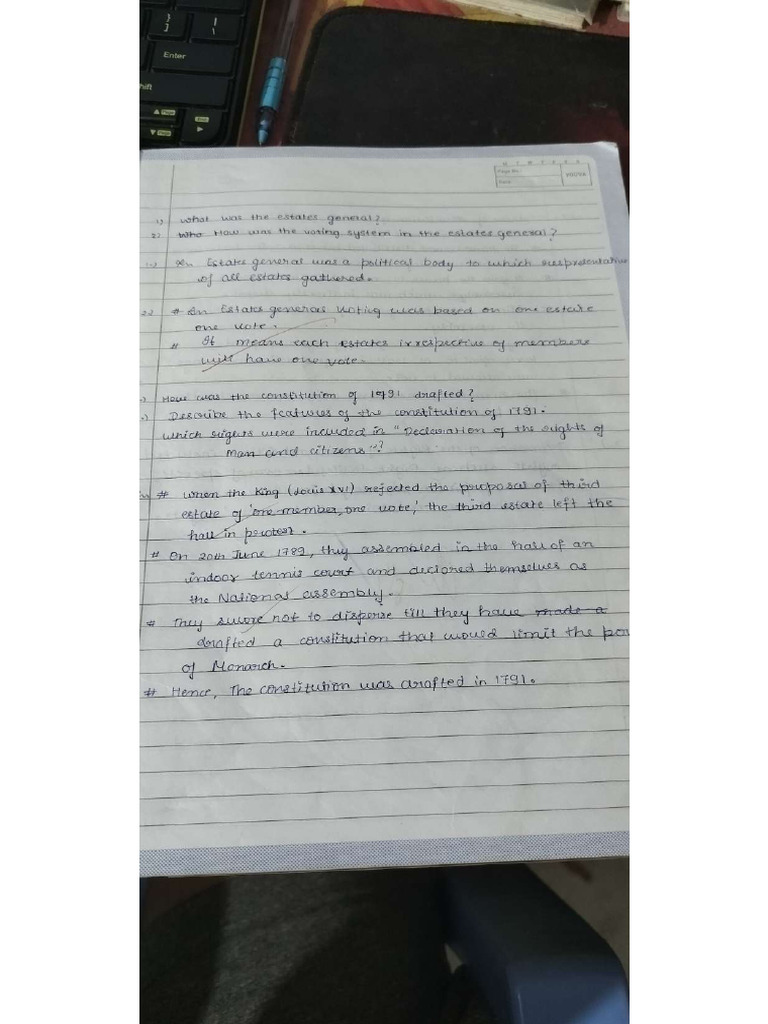 Enter
Page No.:
Date:
YOUVA
1) What was the estates general?
2) Who How was the voting system in the estates general?
Estate general was a political body to which representative
of all estates gathered.
# In Estates general Voting was based on one estate
one vote.
# It means each Estates irrespective of members
will have one vote.
How was the constitution of 1791 drafted?
Describe the features of the constitution of 1791.
which rights were included in "Declaration of the rights of
man and citizens"?
# when the King (Louis XVI) rejected the proposal of third
estate of 'one member, one vote,' the third estate left the
hall in protest.
# On 20th June 1789, they assembled in the hall of an
indoor tennis court and declared themselves as
the National assembly.
# They swore not to disperse till they have made a
drafted a constitution that would limit the po
of Monarch.
# Hence, The constitution was drafted in 1791.